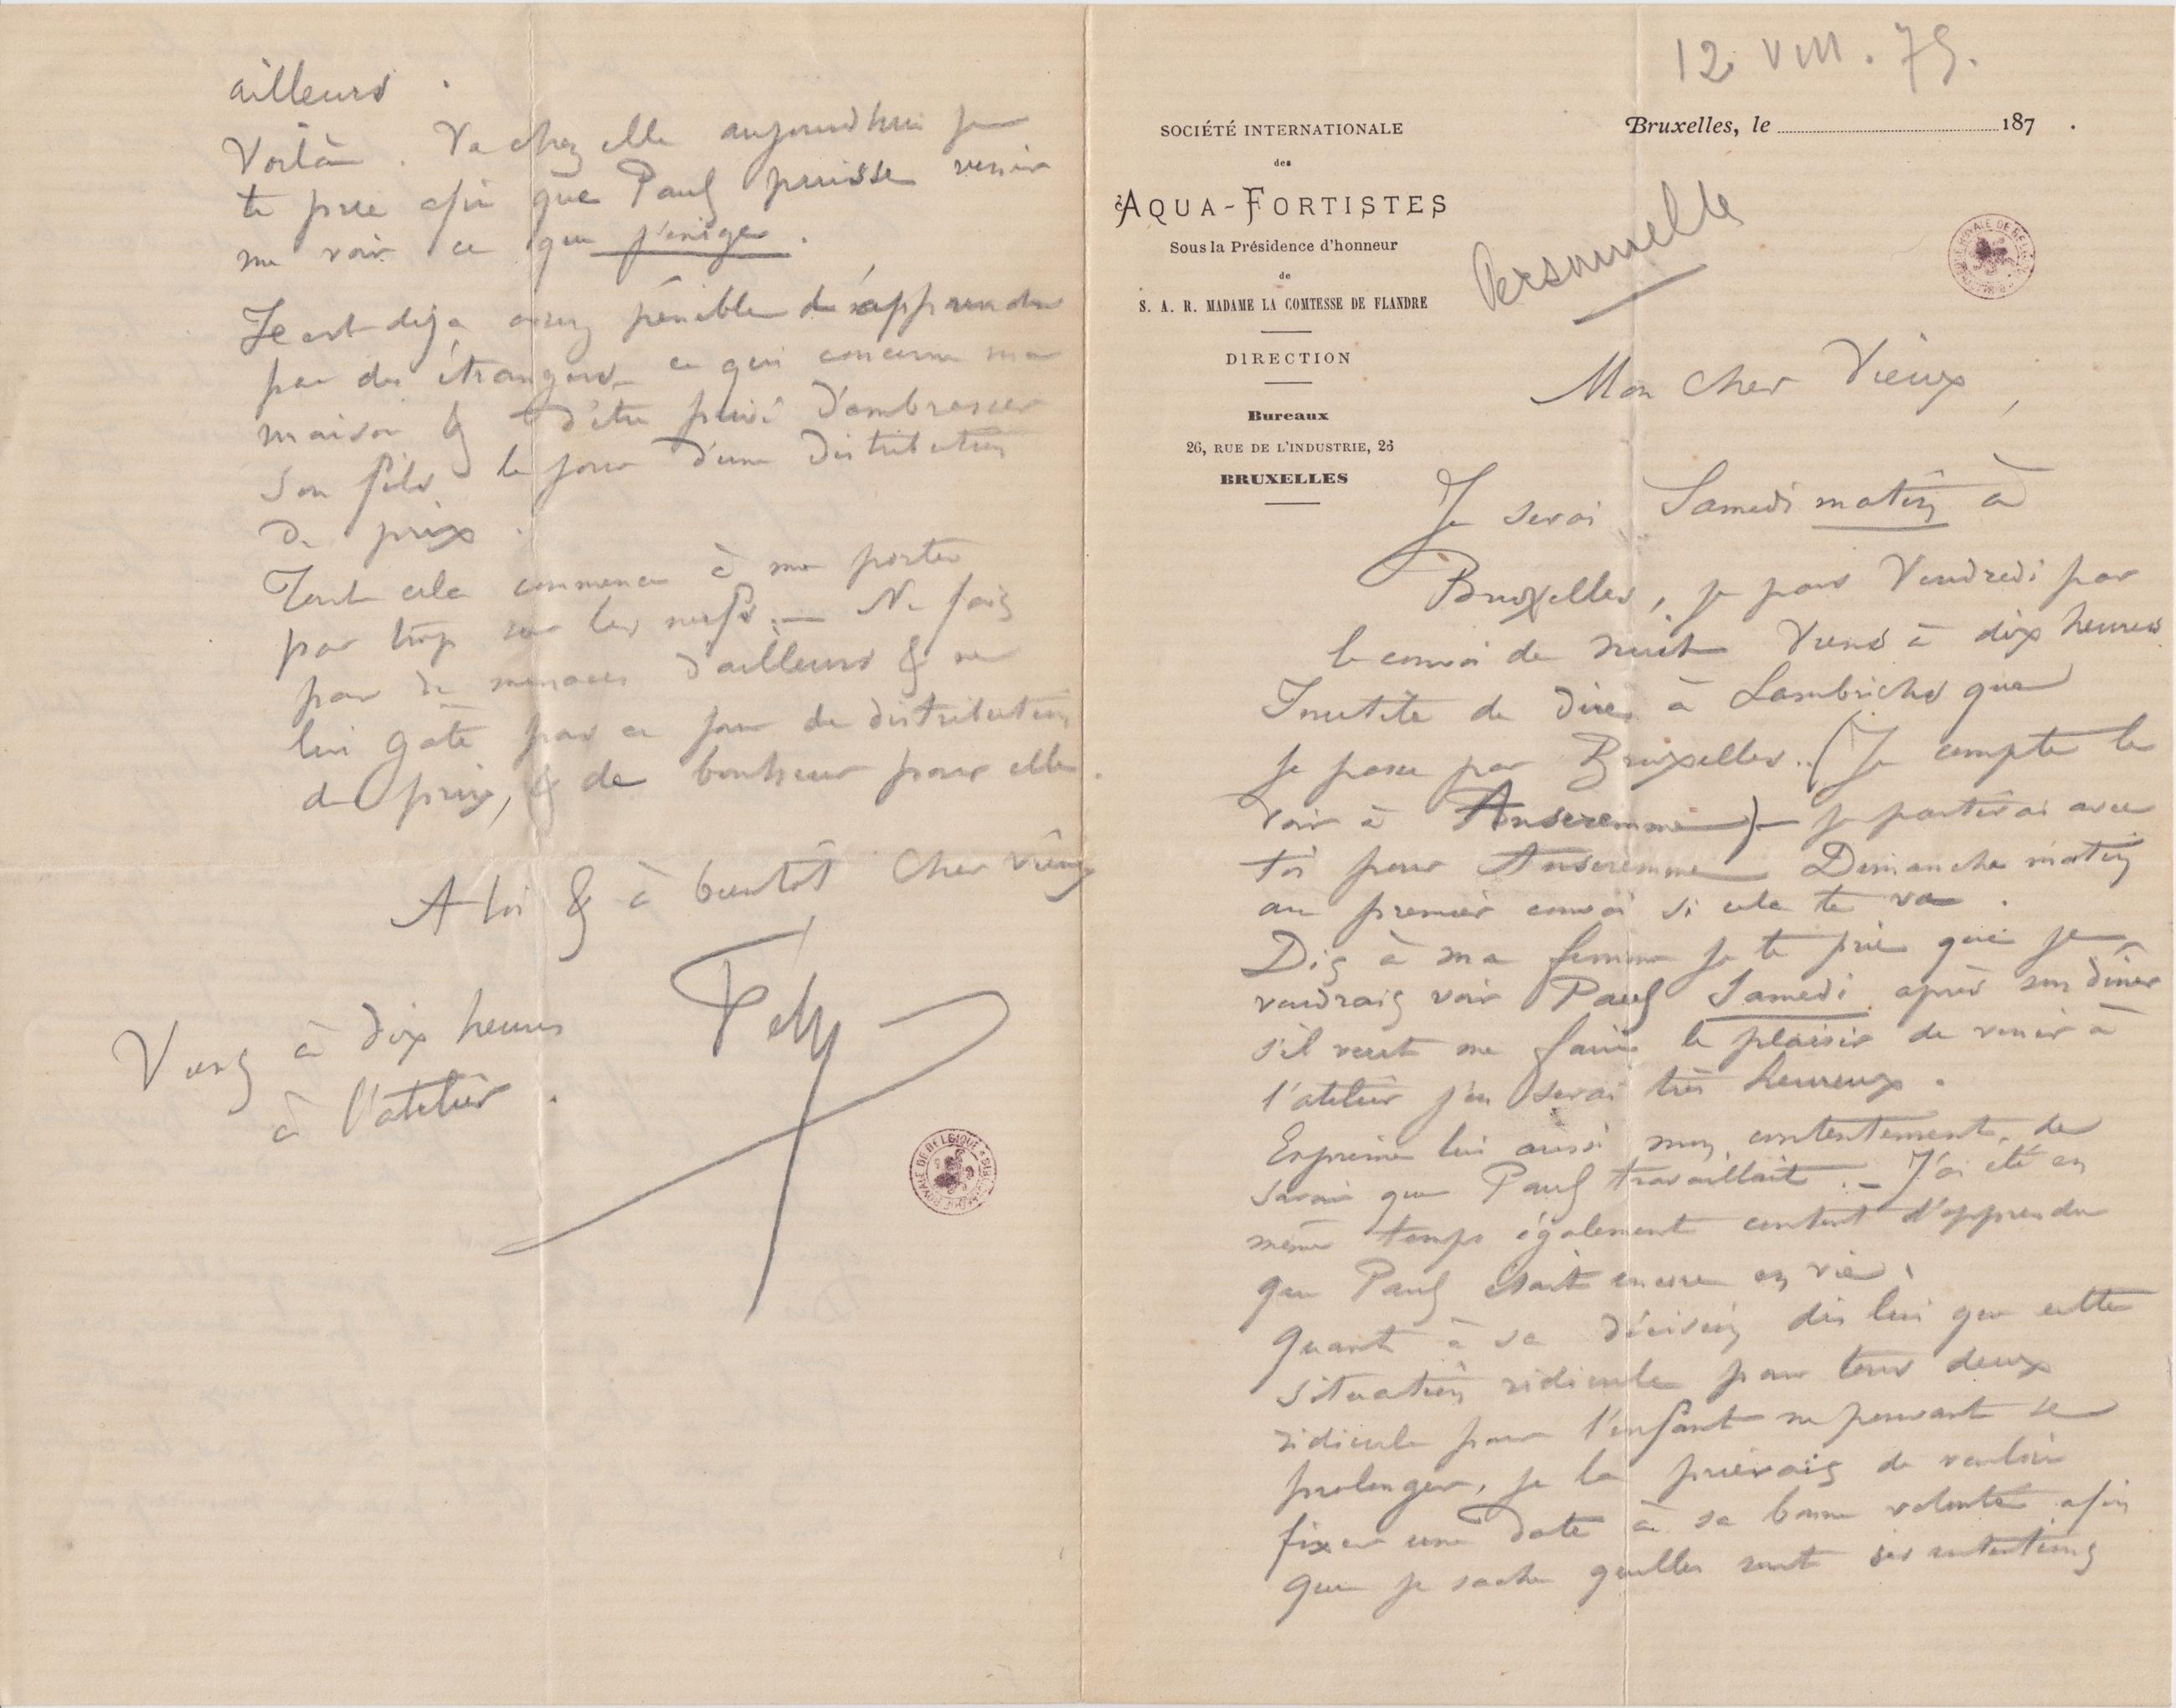 12. VIII. 75.
SOCIÉTÉ INTERNATIONALE
des
AQUA-FORTISTES
Sous la Présidence d'honneur
de
S. A. R. MADAME LA COMTESSE DE FLANDRE
DIRECTION
Bureaux
26, RUE DE L'INDUSTRIE, 26
BRUXELLES
Bruxelles, le 187 .
Personnelle
Mon cher Vieux,
Je serai Samedi matin à
Bruxelles, je pars Vendredi par
le convoi de nuit Viens à dix heures
Inutile de dire à Lambrichs que
je passe par Bruxelles.. (Je compte le
voir à Anseremme) – je partirai avec
toi pour Anseremme Dimanche matin
au premier convoi si cela te va .
Dis à ma femme je te prie que je
voudrais voir Paul Samedi après son dîner
s'il veut me faire le plaisir de venir à
l'atelier j'en serai très heureux .
Exprime lui aussi mon contentement de
savoir que Paul travaillait . – J'ai été en
même temps également content d'apprendre
que Paul était encore en vie .
Quant à sa décision dis lui que cette
situation ridicule pour tous deux
ridicule pour l'enfant ne pouvant se
prolonger, je la prierais de vouloir
fixer une date à sa bonne volonté afin
que je sache quelles sont ses intentions
ailleurs .
Voilà . Va chez elle aujourd'hui je
te prie afin que Paul puisse venir
me voir ce que j'exige .
Il est déjà assez pénible d'apprendre
par des étrangers ce qui concerne ma
maison & d'être privé d'embrasser
son fils le jour d'une distribution
de prix .
Tout cela commence à me porter
par trop sur les nerfs . – Ne fais
pas de menaces d'ailleurs & ne
lui gate pas ce jour de distribution
de prix, & de bonheur pour elle .
A toi & à bientôt Cher vieux
Fély
Viens à dix heures
à l'atelier .